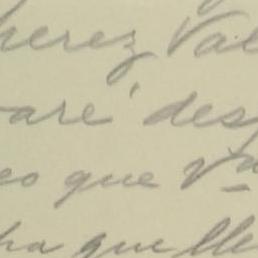 herez Val
taré des
eo que Vm
ha que lle